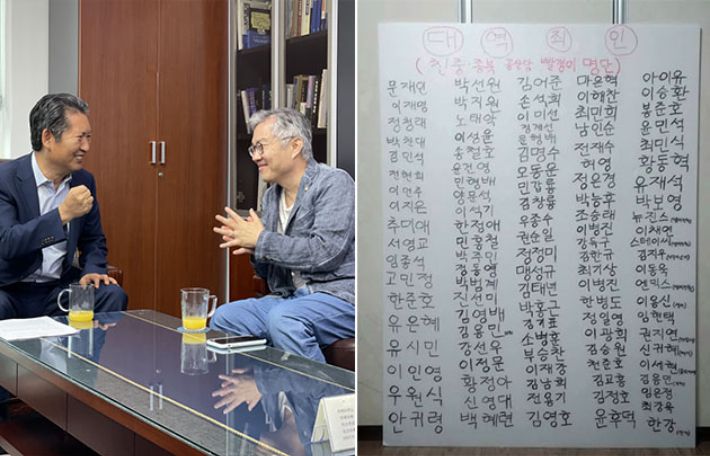 대 역 죄 인
(친중·종북 공산당 빨갱이 명단)
문재인 박선원 김어준 마은혁 아이유
이재명 박지원 손석희 이해찬 이승환
정청래 노태악 이미선 최민희 봉준호
박찬대 이성윤 정계선 남인순 윤민석
김민석 송철호 문형배 전재수 최민식
전현희 윤건영 김명수 허영 황동혁
이언주 민형배 오동운 정은경 유재석
이지은 양문석 민갑룡 박능후 박보영
추미애 이석기 김창룡 조승래 뉴진스
서영교 한정애 우종수 이병진 이채연
임종석 민홍철 권순일 강득구 스테이씨
고민정 박주민 정정미 김한규 김지우
한준호 정동영 맹성규 최기상 이동욱
유은혜 박범계 김태년 이병진 엔믹스
유시민 진선미 박홍근 한병도 이용신
이인영 김영배 김기표 정일영 임현택
우원식 김용민 소병훈 이광희 권지연
안귀령 강선우 부승찬 김승원 신규혜
이정문 이재강 천준호 이서현
황정아 김남희 김교흥 김용민
신영대 전용기 김정호 임은정
백혜련 김영호 윤후덕 최강욱
한강